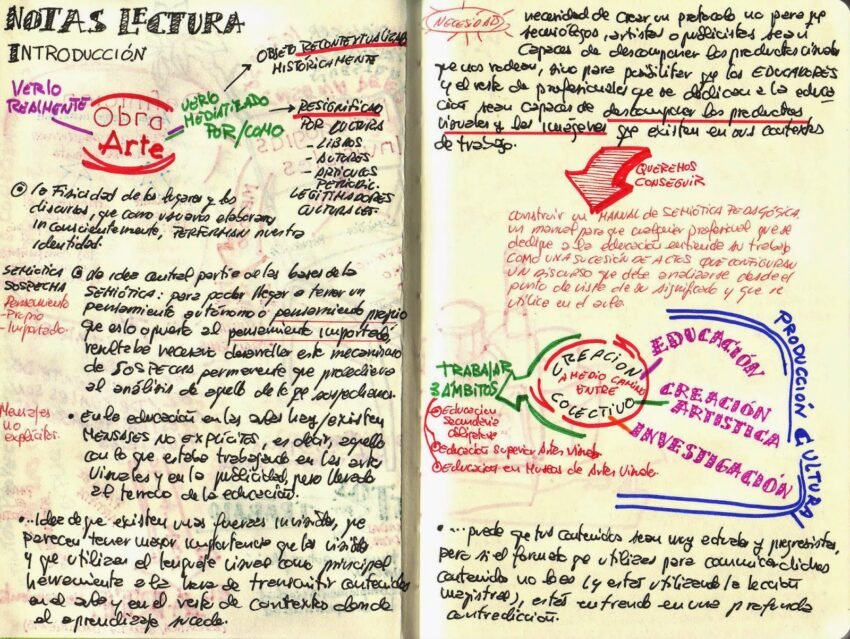 NOTAS LECTURA
INTRODUCCIÓN
VERLO
REALMENTE
Obra
Arte
VERLO
MEDIATIZADO
POR/COMO
OBJETO RECONTEXTUALIZADO
HISTÓRICAMENTE
RESIGNIFICADO
POR CULTURA
- LIBROS
- AUTORES
- ARTÍCULOS
PERIODIC.
LEGITIMADORES
CULTURALES.
la Fisicidad de los lugares y los
discursos, que como usuarios elaboramos
inconscientemente, PERFORMAN nuestra
identidad.
SEMIÓTICA
SOSPECHA
Pensamiento
- Propio
- Importado.
La idea central parte de las bases de la
SEMIÓTICA: para poder llegar a tener un
pensamiento autónomo o pensamiento propio
que es lo opuesto al pensamiento importado,
resultaba necesario desarrollar este mecanismo
de SOSPECHA permanente que
al análisis de aquello de lo que sospechamos.
Mensajes
no
explícitos.
• En la educación en las artes hay/existen
MENSAJES NO EXPLÍCITOS, es decir, aquello
con lo que estaba trabajando en las artes
visuales y en la publicidad, pero llevado
al terreno de la educación.
•... Idea de que existen unas fuerzas invisibles, que
parecen tener mayor importancia que las visibles
y que utilizan el lenguaje visual como principal
herramienta a la hora de transmitir contenidos
en el arte y en el resto de contextos donde
el aprendizaje sucede.
NECESIDAD
necesidad de crear un protocolo no para que
tecnólogos, artistas o publicistas sean
capaces de descomponer los productos visuales
que nos rodean, sino para posibilitar que los EDUCADORES
y el resto de profesionales que se dedican a la educa-
ción sean capaces de descomponer los productos
visuales y las imágenes que existen en sus contextos
de trabajo.
QUEREMOS
CONSEGUIR
construir un MANUAL DE SEMIÓTICA PEDAGÓGICA
un manual para que cualquier profesional que se
dedique a la educación entienda su trabajo
COMO UNA SUCESIÓN DE ACTOS QUE CONFIGURAN
UN DISCURSO que debe analizarse desde el
punto de vista de su significado y que se
utilice en el aula.
TRABAJAR
3 ÁMBITOS
Educación
secundaria
obligatoria
Educación Superior Artes Visuales
Educación en Museos de Artes Visuales.
CREACIÓN
A MEDIO CAMINO
ENTRE
COLECTIVO
EDUCACIÓN
CREACIÓN
ARTÍSTICA
INVESTIGACIÓN
PRODUCCIÓN CULTURAL
•... puede que tus contenidos sean muy actuales y progresistas,
pero si el formato que utilizas para comunicar dichos
contenidos no lo es (y estás utilizando la lección
magistral), estás entrando en una profunda
contradicción.